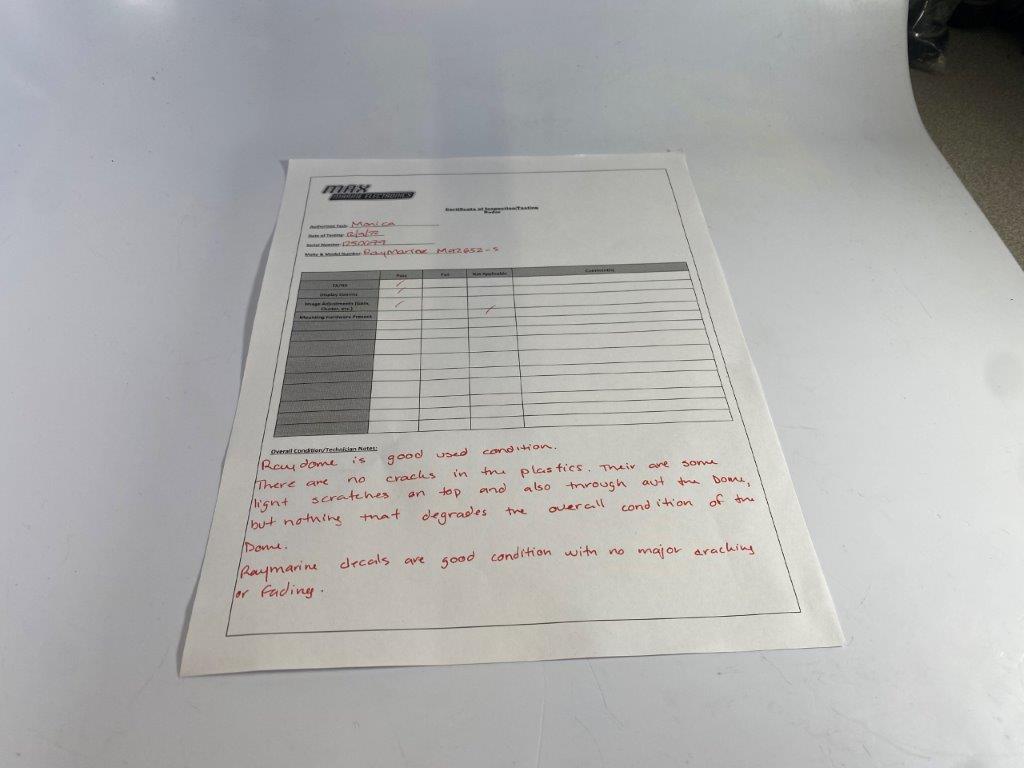 MAX
MARINE ELECTRONICS
Certificate of Inspection/Testing
Radar
Authorized Tech: Monica
Date of Testing:
Serial Number:
Make & Model Number: Raymarine M92652-S
Pass Fail Not Applicable Comments
TX/RX
Display
Image Adjustments (Gain, Clutter, etc.)
Mounting Hardware Present
Overall Condition/Technician Notes:
Raydome is good used condition.
There are no cracks in the plastics. Their are some
light scratches on top and also through out the Dome,
but nothing that degrades the overall condition of the
Dome.
Raymarine decals are good condition with no major cracking
or fading.